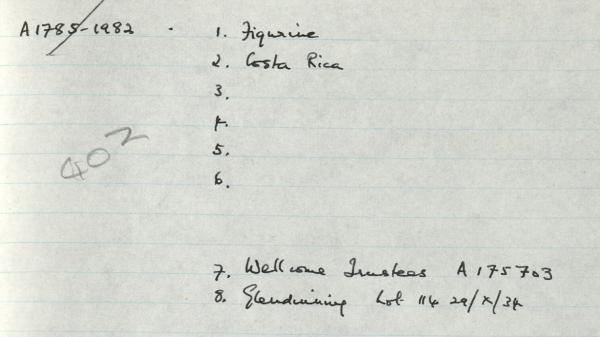 A1785-1982 . 1. Figurine
2. Costa Rica
3.
4.
402
5.
6.
7. Wellcome Trustees A 175703
8. Glendinning Lot 114 29/X/34